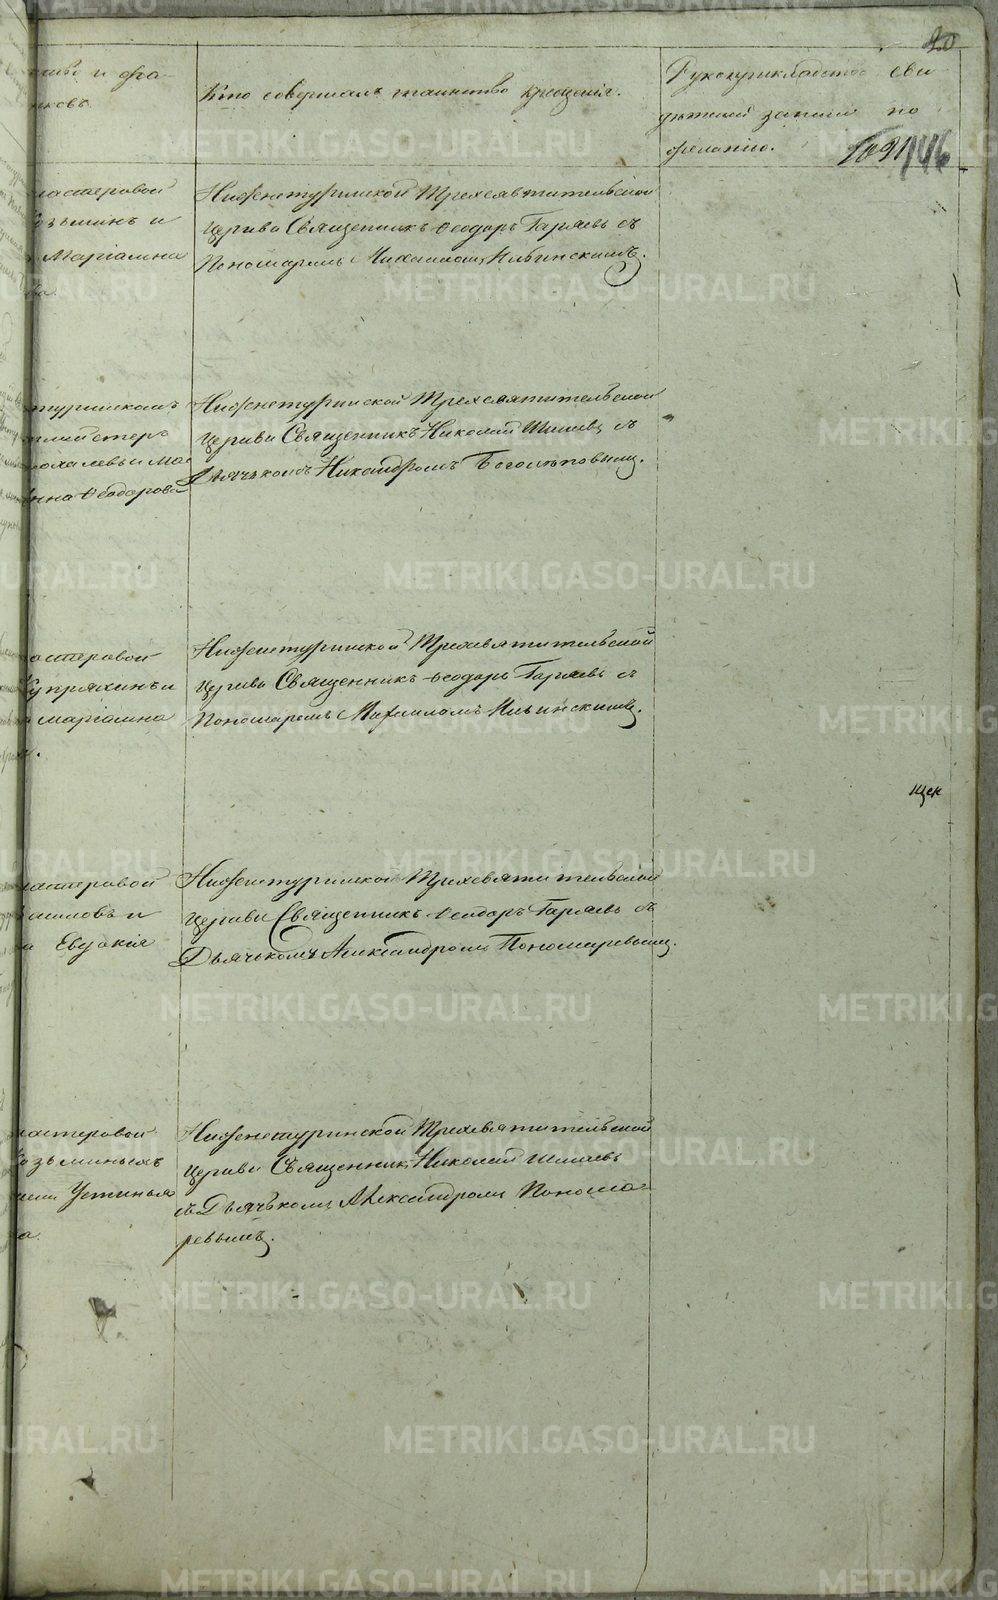 20
Кто совершалъ таинство крещенія.
Рукоприкладство сви-
дѣтелей записи по
желанію.
мастеровой
Козьминъ и
Маріамна
Нижнетуринской Трехсвятительской
Церкви Священникъ Ѳеодоръ Гаряевъ съ
Пономаремъ Михаиломъ Ильинскимъ.
туринскомъ
Анна Ѳеодорова
Нижнетуринской Трехсвятительской
Церкви Священникъ Николай Шишевъ съ
Дьячькомъ Никандромъ Боголѣповымъ.
мастеровой
Купряхинъ и
Маріамна
Нижнетуринской Трехсвятительской
Церкви Священникъ Ѳеодоръ Гаряевъ съ
Пономаремъ Михаиломъ Ильинскимъ.
мастеровой
Евдокія
Нижнетуринской Трехсвятительской
Церкви Священникъ Ѳеодоръ Гаряевъ съ
Дьячькомъ Александромъ Пономаревымъ.
мастеровой
Козьминыхъ
Устинья
Нижнетуринской Трехсвятительской
Церкви Священникъ Николай Шишевъ
съ Дьячькомъ Александромъ Понома-
ревымъ.
METRIKI.GASO-URAL.RU